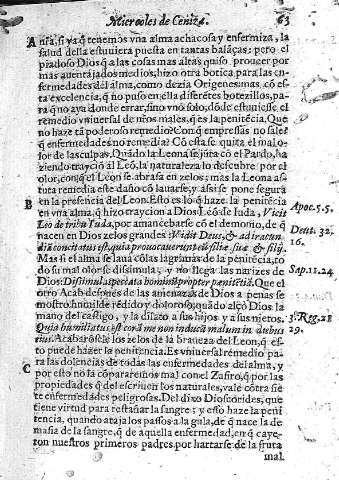 Miercoles de Ceniza. 63
A nſia, ſi ya q̃ tenemos vna alma achacoſa y enfermiza, la
ſalud della eſtuuiera pueſta en tantas balãças: pero el
piadoſo Dios q̃ a las coſas mas altas quiſo proueer por
mas auentajados medios, hizo otra botica para las en-
fermedades del alma, como dezia Origenes: mas cõ eſ-
ta excelencia, q̃ no puſo en ella diferẽtes botezillos, pa-
ra q̃ no aya donde errar, ſino vno ſolo, dõde eſtuuieſſe el
remedio vniuerſal de nr̃os males, q̃ es la penitẽcia. Que
no haze tã poderoſo remedio? Con q̃ empreſſas no ſale?
q̃ enfermedades no remedia? Cõ eſta ſe quita el mal o-
lor de las culpas. Quãdo la Leona ſe jũta cõ el Pardo, ha
ziendo trayciõ al Leõ, la naturaleza lo deſcubre por el
olor, con q̃ el Leon ſe abraſa en zelos: mas la Leona aſ-
tuta remedia eſte daño cõ lauarſe, y aſsi ſe pone ſegura
B en la preſencia del Leon. Eſto es lo q̃ haze la penitẽcia
en vna alma, q̃ hizo traycion a Dios Leõ de Iuda, Vicit Apoc. 5. 5.
Leo de tribu Iuda, por amancebarſe cõ el demonio, de q̃
nacen en Dios zelos grandes: Vidit Deus, & ad iracun- Deut. 32.
diã concitatus eſt, quia prouocauerunt eũ filiæ ſuæ & filij. 16.
Mas ſi el alma ſe laua cõ las lagrimas de la penitẽcia, to
do ſu mal olor ſe diſsimula, y no llega las narizes de
Dios: Diſsimulas peccata hominũ propter pœnitẽtiã. Que el Sap. 11. 24.
otro Acab deſpues de las amenazas de Dios a penas ſe
moſtro humilde, rẽdido y doloroſo, quãdo alçò Dios la
mano del caſtigo, y la dilatò a ſus hijos y a ſus nietos, 3. Reg. 21
Quia humiliatus eſt corã me non inducã malum in diebus 29.
eius. Acabaroſe los zelos de la braueza del Leon, q̃ eſ-
to puede hazer la penitencia. Es vniuerſal remedio pa-
ra las dolencias de todas las enfermedades del alma, y
C por eſto no la cõpararemos mal con el Zafiro, q̃ por las
propiedades q̃ del eſcriuen los naturales, vale cõtra ſie-
te enfermedades peligroſas. Del dixo Dioſcorides, que
tiene virtud para reſtañar la ſangre: y eſſo haze la peni
tencia, quando ataja los paſſos a la gula, de q̃ nace la de-
maſia de la ſangre, q̃ de aquella enfermedad, en q̃ caye-
ron nueſtros primeros padres, por hartarſe de la fruta
mal.